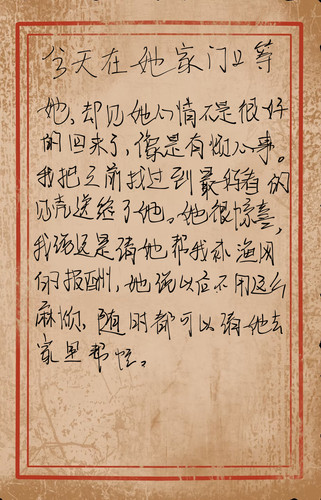 今天在她家门口等
她，却见她心情不是很好
的回来了，像是有烦心事。
我把之前找过到最好看的
贝壳送给了她。她很惊喜，
我说这是请她帮我补渔网
的报酬，她说以后不用这么
麻烦，随时都可以请她去
家里帮忙。